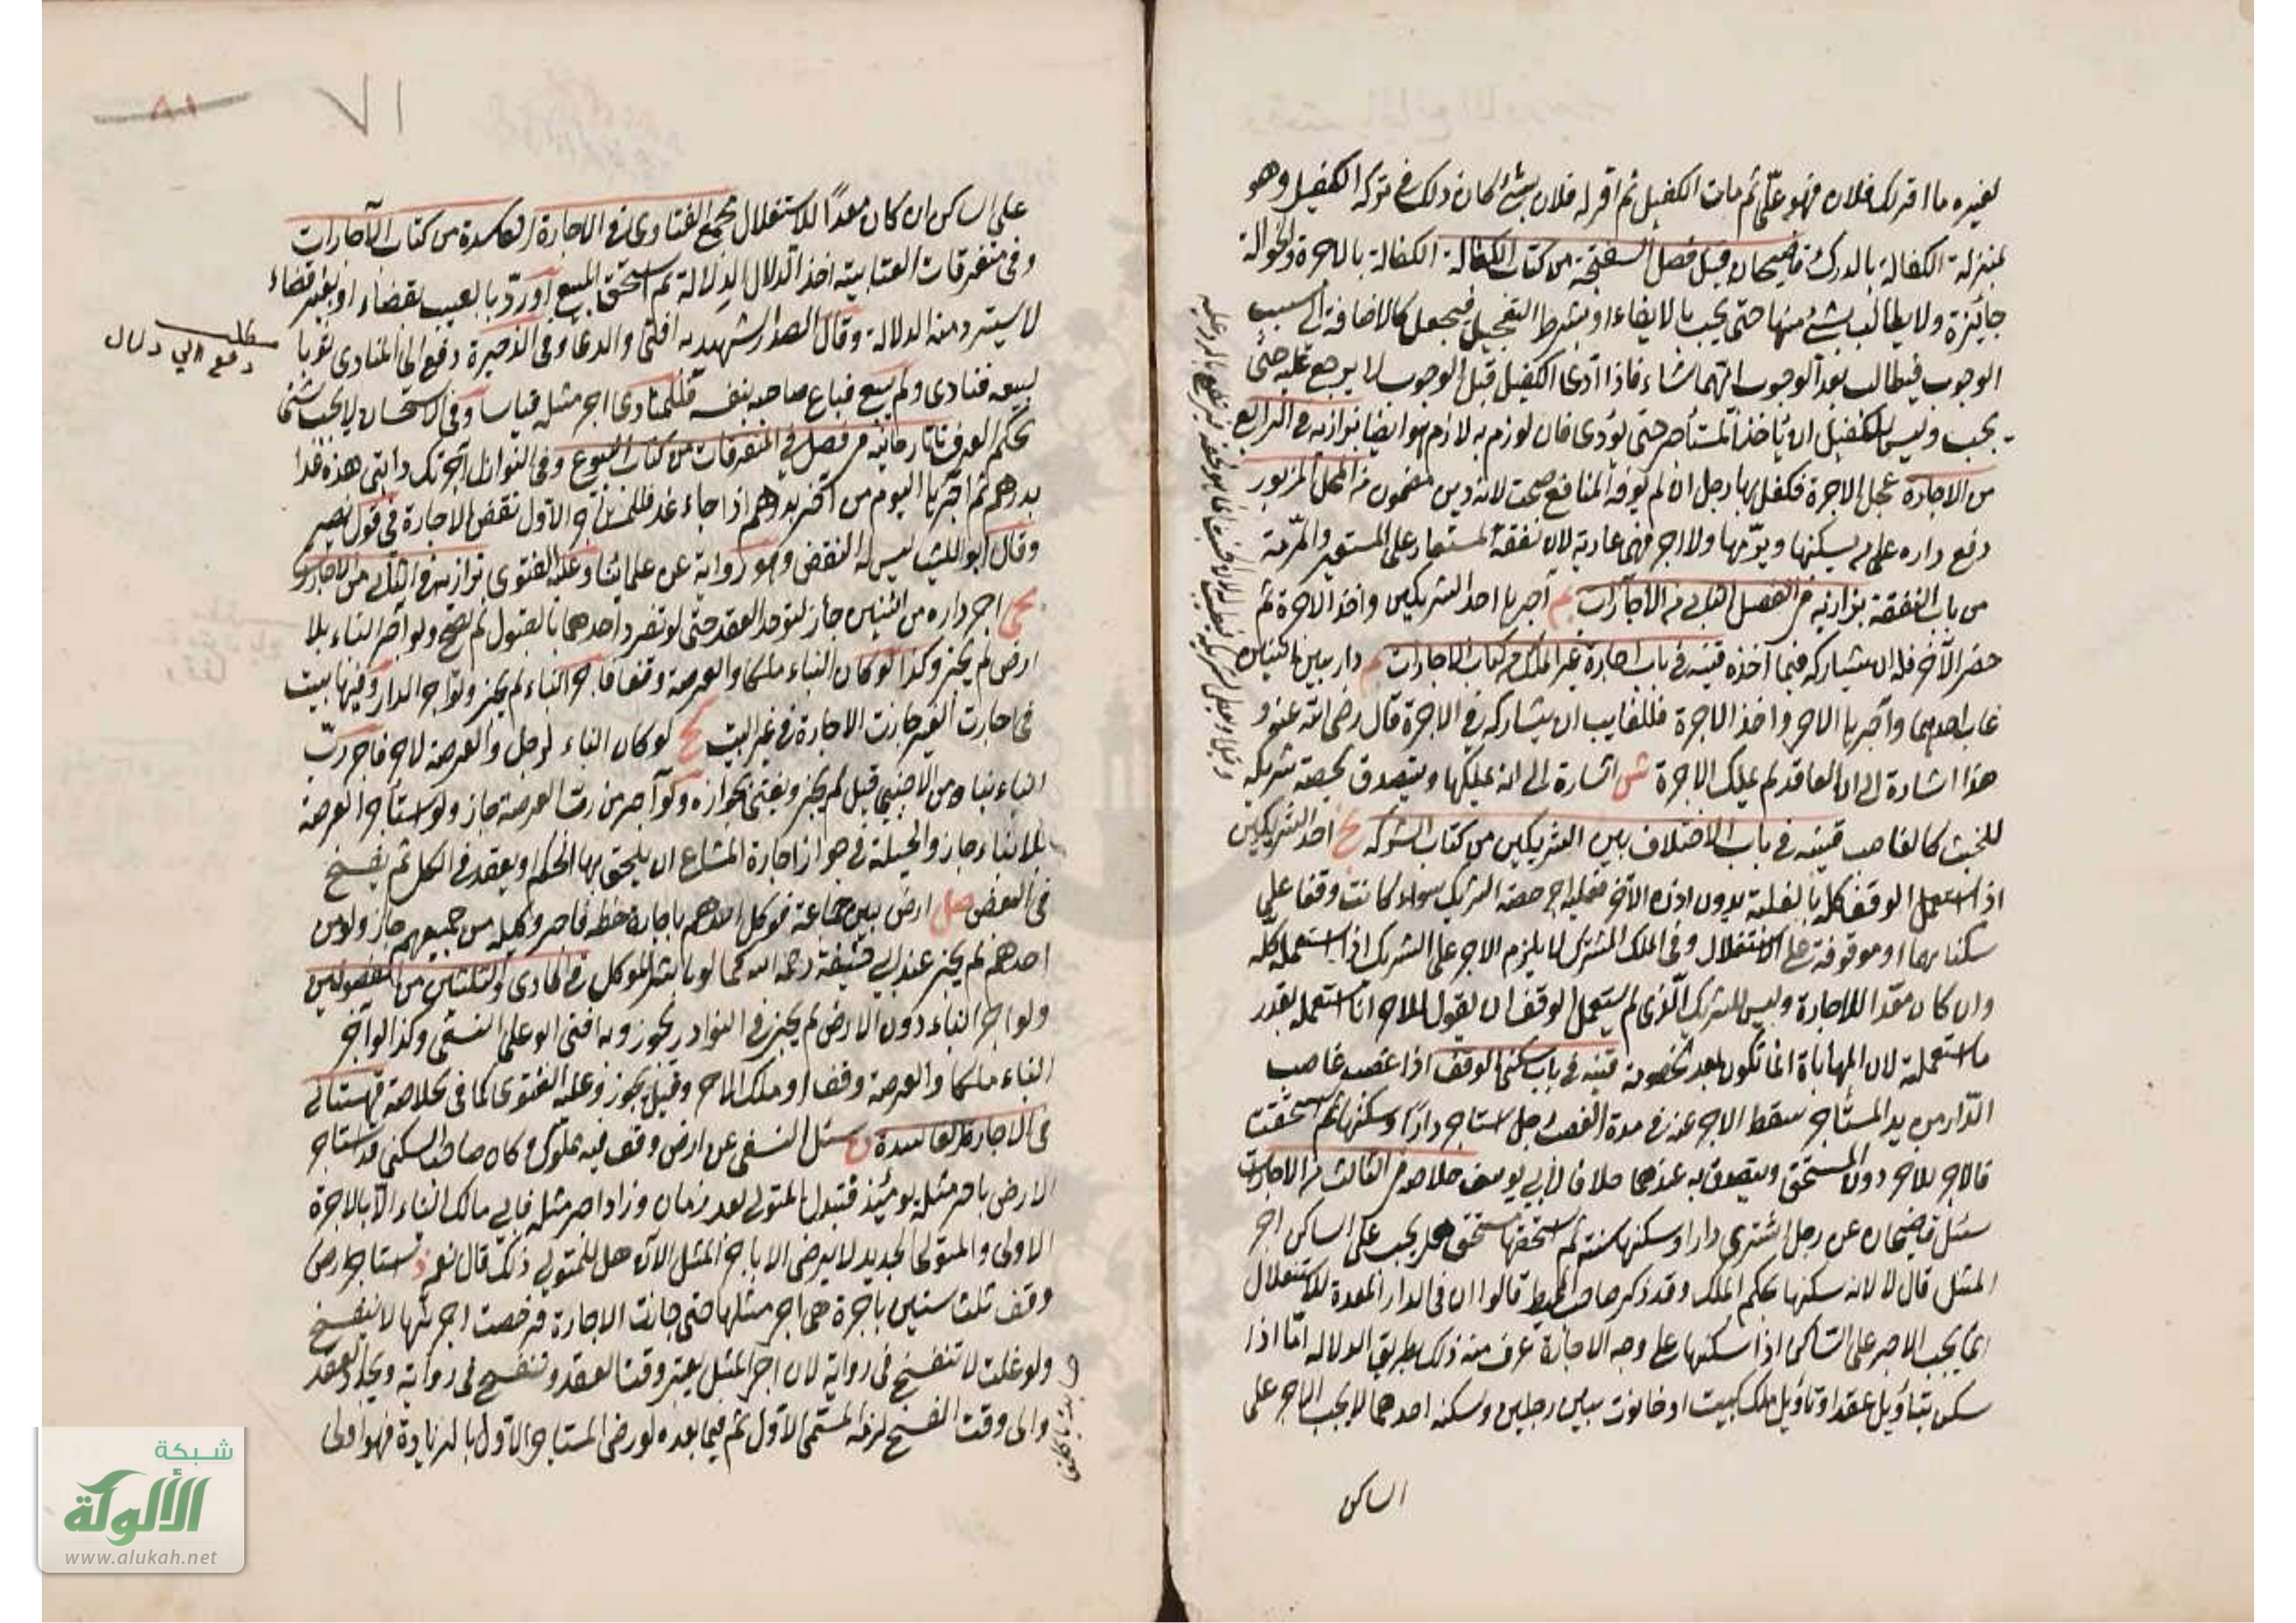 لغيره ما اقر لك فلان فهو عليّ ثم مات الكفيل ثم اقر له فلان بشئ كان ذلك في تركة الكفيل وهو
بمنزلة الكفالة بالدرك قاضيخان قبيل فصل السفتجة من كتاب الكفالة الكفالة بالاجرة والحوالة
جائزة ولا يطالب بشئ منها حتى يجب بالايفاء او بشرط التعجيل فيجعل كالاضافة الى سبب
الوجوب فيطالب بعد الوجوب ايهما شاء فاذا ادى الكفيل قبل الوجوب لا يرجع عليه حتى
يجب وليس للكفيل ان ياخذ المستأجر حتى يؤدى فان لوزم به لازم هو ايضا بزازيه في الرابع
من الاجارة عجل الاجرة فكفل بها رجل ان لم يوفه المنافع صحت لانه دين مضمون من المحل المزبور
دفع داره على ان يسكنها ويرمها ولا اجر فهى عارية لان نفقة المستعار على المستعير والمرمة
من باب النفقة بزازيه في الفصل الثانى من الاجارات بم آجرها احد الشريكين واخذ الاجرة ثم
حضر الآخر فله ان يشاركه فيما اخذه قنيه في باب اجارة غير الملك من كتاب الاجارات دار بين اثنين
غاب احدهما وآجرها الاخر واخذ الاجرة فللغايب ان يشاركه في الاجرة قال رضى الله عنه و
هذا اشارة الى ان العاقد لم يملك الاجرة شس اشارة الى انه يملكها ويتصدق بحصة شريكه
للخبث كالغاصب قنيه في باب الاختلاف بين الشريكين من كتاب الشركه احد الشريكين
اذا استعمل الوقف كله بالغلبة بدون اذن الآخر فعليه اجر حصة الشريك سواء كانت وقفا على
سكناهما او موقوفة على الاستغلال وفى الملك المشترك لا يلزم الاجر على الشريك اذا استعمله كله
وان كان معدا للاجارة وليس للشريك الذى لم يستعمل الوقف ان يقول للاخر انا استعمله بقدر
ما استعملته لان المهاياة انما تكون بعد الخصومة قنيه في باب سكنى الوقف اذا غصب غاصب
الدار من يد المستأجر سقط الاجر عنه في مدة الغصب رجل استاجر دارا وسكنها ثم استحقت
فالاجر للآجر دون المستحق ويتصدق به عندهما خلافا لابي يوسف خلاصه في الثالث من الاجارات
سئل قاضيخان عن رجل اشترى دارا وسكنها سنة ثم استحقها مستحق هل يجب على الساكن اجر
المثل قال لا لانه سكنها بحكم الملك وقد ذكر صاحب المحيط قالوا ان فى الدار المعدة للاستغلال
انما يجب الاجر على الساكن اذا سكنها على وجه الاجارة عرف منه ذلك بطريق الدلالة اما اذا
سكن بتأويل عقد او تاويل ملك كبيت او حانوت بين رجلين وسكنه احدهما لا يجب الاجر على
الساكن
١٧
٨١
على الساكن ان كان معدًا للاستغلال مجمع الفتاوى في الاجارة الفاسدة من كتاب الآجارات
وفى متفرقات العتابيه اخذ الدلال الدلالة ثم استحق المبيع او ردّ بالعيب بقضاء او بغير قضاء
لا يسترد منه الدلالة وقال الصدر الشهيد به افتى والدى وفى الذخيرة دفع الى المنادى ثوبا
ليبيعه فنادى ولم يبع فباع صاحبه بنفسه فللمنادى اجر مثله قياسا وفى الاستحسان لا يجب شئ
بحكم العرف تاتارخانيه في فصل في المتفرقات من كتاب البيوع وفى النوازل آجرتك دابتى هذه غدا
بدرهم ثم آجرها اليوم من آخر بدرهم اذا جاء غد فللمستأجر الاول نقض الاجارة في قول نصير
وقال ابو الليث ليس له النقض وهو رواية عن علمائنا وعليه الفتوى بزازيه في الثانى من الاجارات
اجر داره من اثنين جاز لتوحد العقد حتى لو تفرد احدهما بالقبول لم يصح ولو آجر البناء بلا
ارض لم يجز وكذا لو كان البناء ملكا والعرصة وقفا فآجر البناء لم يجز ولو آجر الدار وفيها بيت
في اجارة الغير جازت الاجارة في غير البيت لو كان البناء لرجل والعرصة لاخر فاجر ربّ
البناء بناءه من الاجنبي قيل لم يجز ويفتى بجوازه ولو آجر من رب العرصة جاز ولو استأجر العرصة
بلا بناء جاز والحيلة في جواز اجارة المشاع ان يلحق بها الحكم او يعقد فى الكل ثم يفسخ
فى البعض صل ارض بين جماعة فوكل احدهم باجارة حظه فآجر وكيله من جميعهم جاز ولو من
احدهم لم يجز عند ابى حنيفة رحمه الله كما لو باشر الموكل في الحادى والثلثين من الفصولين
ولو اجر البناء دون الارض لم يجز وفي النوادر يجوز وبه افتى ابو على النسفى وكذا لو آجر
البناء ملكا والعرصة وقفا او ملك الآخر وقيل يجوز وعليه الفتوى كما فى الخلاصة قهستانى
فى الاجارة الفاسدة سئل النسفى عن ارض وقف فيه مملوك وكان صاحب السكنى قد استأجر
الارض باجر مثله يومئذ فتبدل المتولى بعد زمان وزاد اجر مثله فابى مالك البناء الا بالاجرة
الاولى والمتولى الجديد لا يرضى الا باجر المثل الآن هل للمتولى ذلك قال نعم استأجر ارض
وقف ثلث سنين باجرة هى اجر مثلها حتى جازت الاجارة فرخصت اجرتها لا تنفسخ
ولو غلت لا تنفسخ فى رواية لان اجر المثل يعتبر وقت العقد وتنفسخ فى رواية ويجدد العقد
والى وقت الفسخ لزمه المسمى الاول ثم فيما بعده لو رضى المستأجر الاول بالزيادة فهو اولى
مطلب
دفع الى دلال
شبكة
الألوكة
www.alukah.net